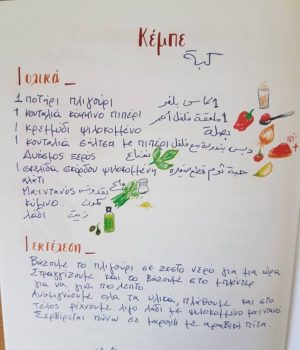 Κέμπε
كبة
Υλικά
1 ποτήρι πλιγούρι
1 κουταλιά κόκκινο πιπέρι
1 κρεμμύδι ψιλοκομμένο بصلة
1 κουταλιά σάλτσα με πιπέρι
Δυόσμος ξερός نعناع
1 σκελίδα σκόρδου ψιλοκομμένη
αλάτι
Μαϊντανός
κύμινο كمون
λάδι زيت
Εκτέλεση
Βάζουμε το πλιγούρι σε ζεστό νερό για μια ώρα
Στραγγίζουμε και το βάζουμε στο μπλέντερ
για να γίνει πιο λεπτό.
Αναμιγνύουμε όλα τα υλικά, πλάθουμε και στο
τέλος ρίχνουμε λίγο λάδι με ψιλοκομμένο μαϊντανό
Σερβίρεται πάνω σε μαρούλι με αραβική πίτα.